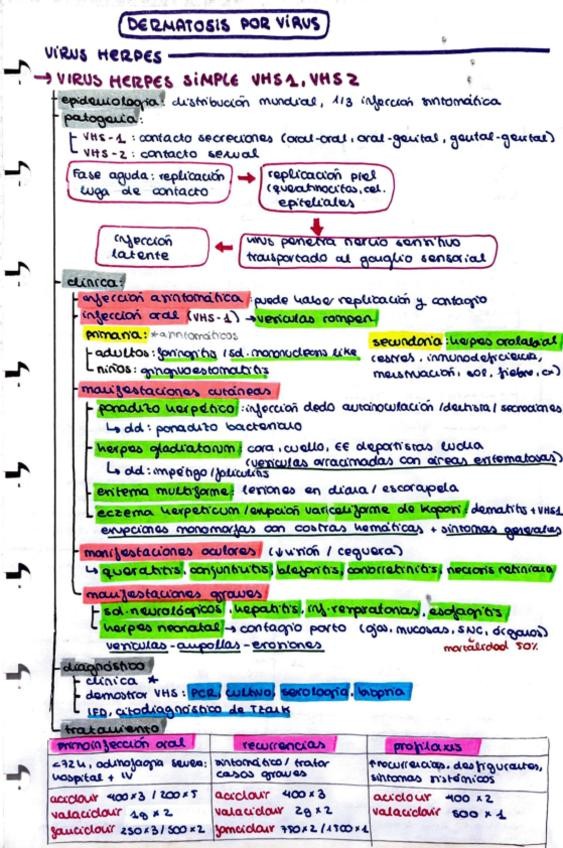 DERMATOSIS POR VIRUS
VIRUS HERPES
→ VIRUS HERPES SIMPLE VHS1, VHS2
epidemiologia: distribución mundial, 1/3 infección sintomática
patogenia:
VHS-1: contacto secreciones (oral-oral, oral-genital, genital-genital)
VHS-2: contacto sexual
Fase aguda: replicación
luga de contacto
→ replicación piel
(queratinocitos, cel.
epiteliales
virus penetra nervio sensitivo
trasportado al ganglio sensorial
← infección
latente
clinica:
infección asintomática: puede haber replicación y contagio
infección oral (VHS-1) → vesiculas rompen
primaria: *asintomáticos
adultos: faringitis / sd. mononucleosis like
niños: gingivoestomatitis
secundaria: herpes orolabial
(estres, inmunodeficiencia,
menstruación, sol, fiebre, cx)
manifestaciones cutáneas
panadizo herpético: infección dedo autoinoculación / dentista / secreciones
↳ dd: panadizo bacteriano
herpes gladiatorum: cara, cuello, EE deportistas lucha
↳ dd: impétigo / foliculitis (vesiculas arracimadas con áreas eritematosas)
eritema multiforme: lesiones en diana / escarapela
eczema herpeticum / erupción variceliforme de Kaposi: dematitis + VHS1
erupciones monomorfas con costras hemáticas + síntomas generales
manifestaciones oculares (↓ visión / ceguera)
↳ queratitis, conjuntivitis, blefaritis, coriorretinitis, necrosis retiniana
manifestaciones graves
sd. neurológicos, hepatitis, inf. respiratorias, esofagitis
herpes neonatal → contagio parto (ojos, mucosas, SNC, órganos)
vesiculas-ampollas-erosiones mortalidad 50%
diagnóstico
clinica *
demostrar VHS: PCR, cultivo, serologia, biopsia
IFD, citodiagnóstico de Tzank
tratamiento
primoinfección oral
<72h, odinofagia severa:
hospital + IV
aciclovir 400x3 / 200x5
valaciclovir 1g x 2
famciclovir 250x3 / 500x2
recurrencias
sintomático / tratar
casos graves
aciclovir 400x3
valaciclovir 2g x2
famciclovir 750x2 / 1500x1
profilaxis
↑ recurrencias, desfigurantes,
síntomas sistémicos
aciclovir 400 x2
valaciclovir 500 x1